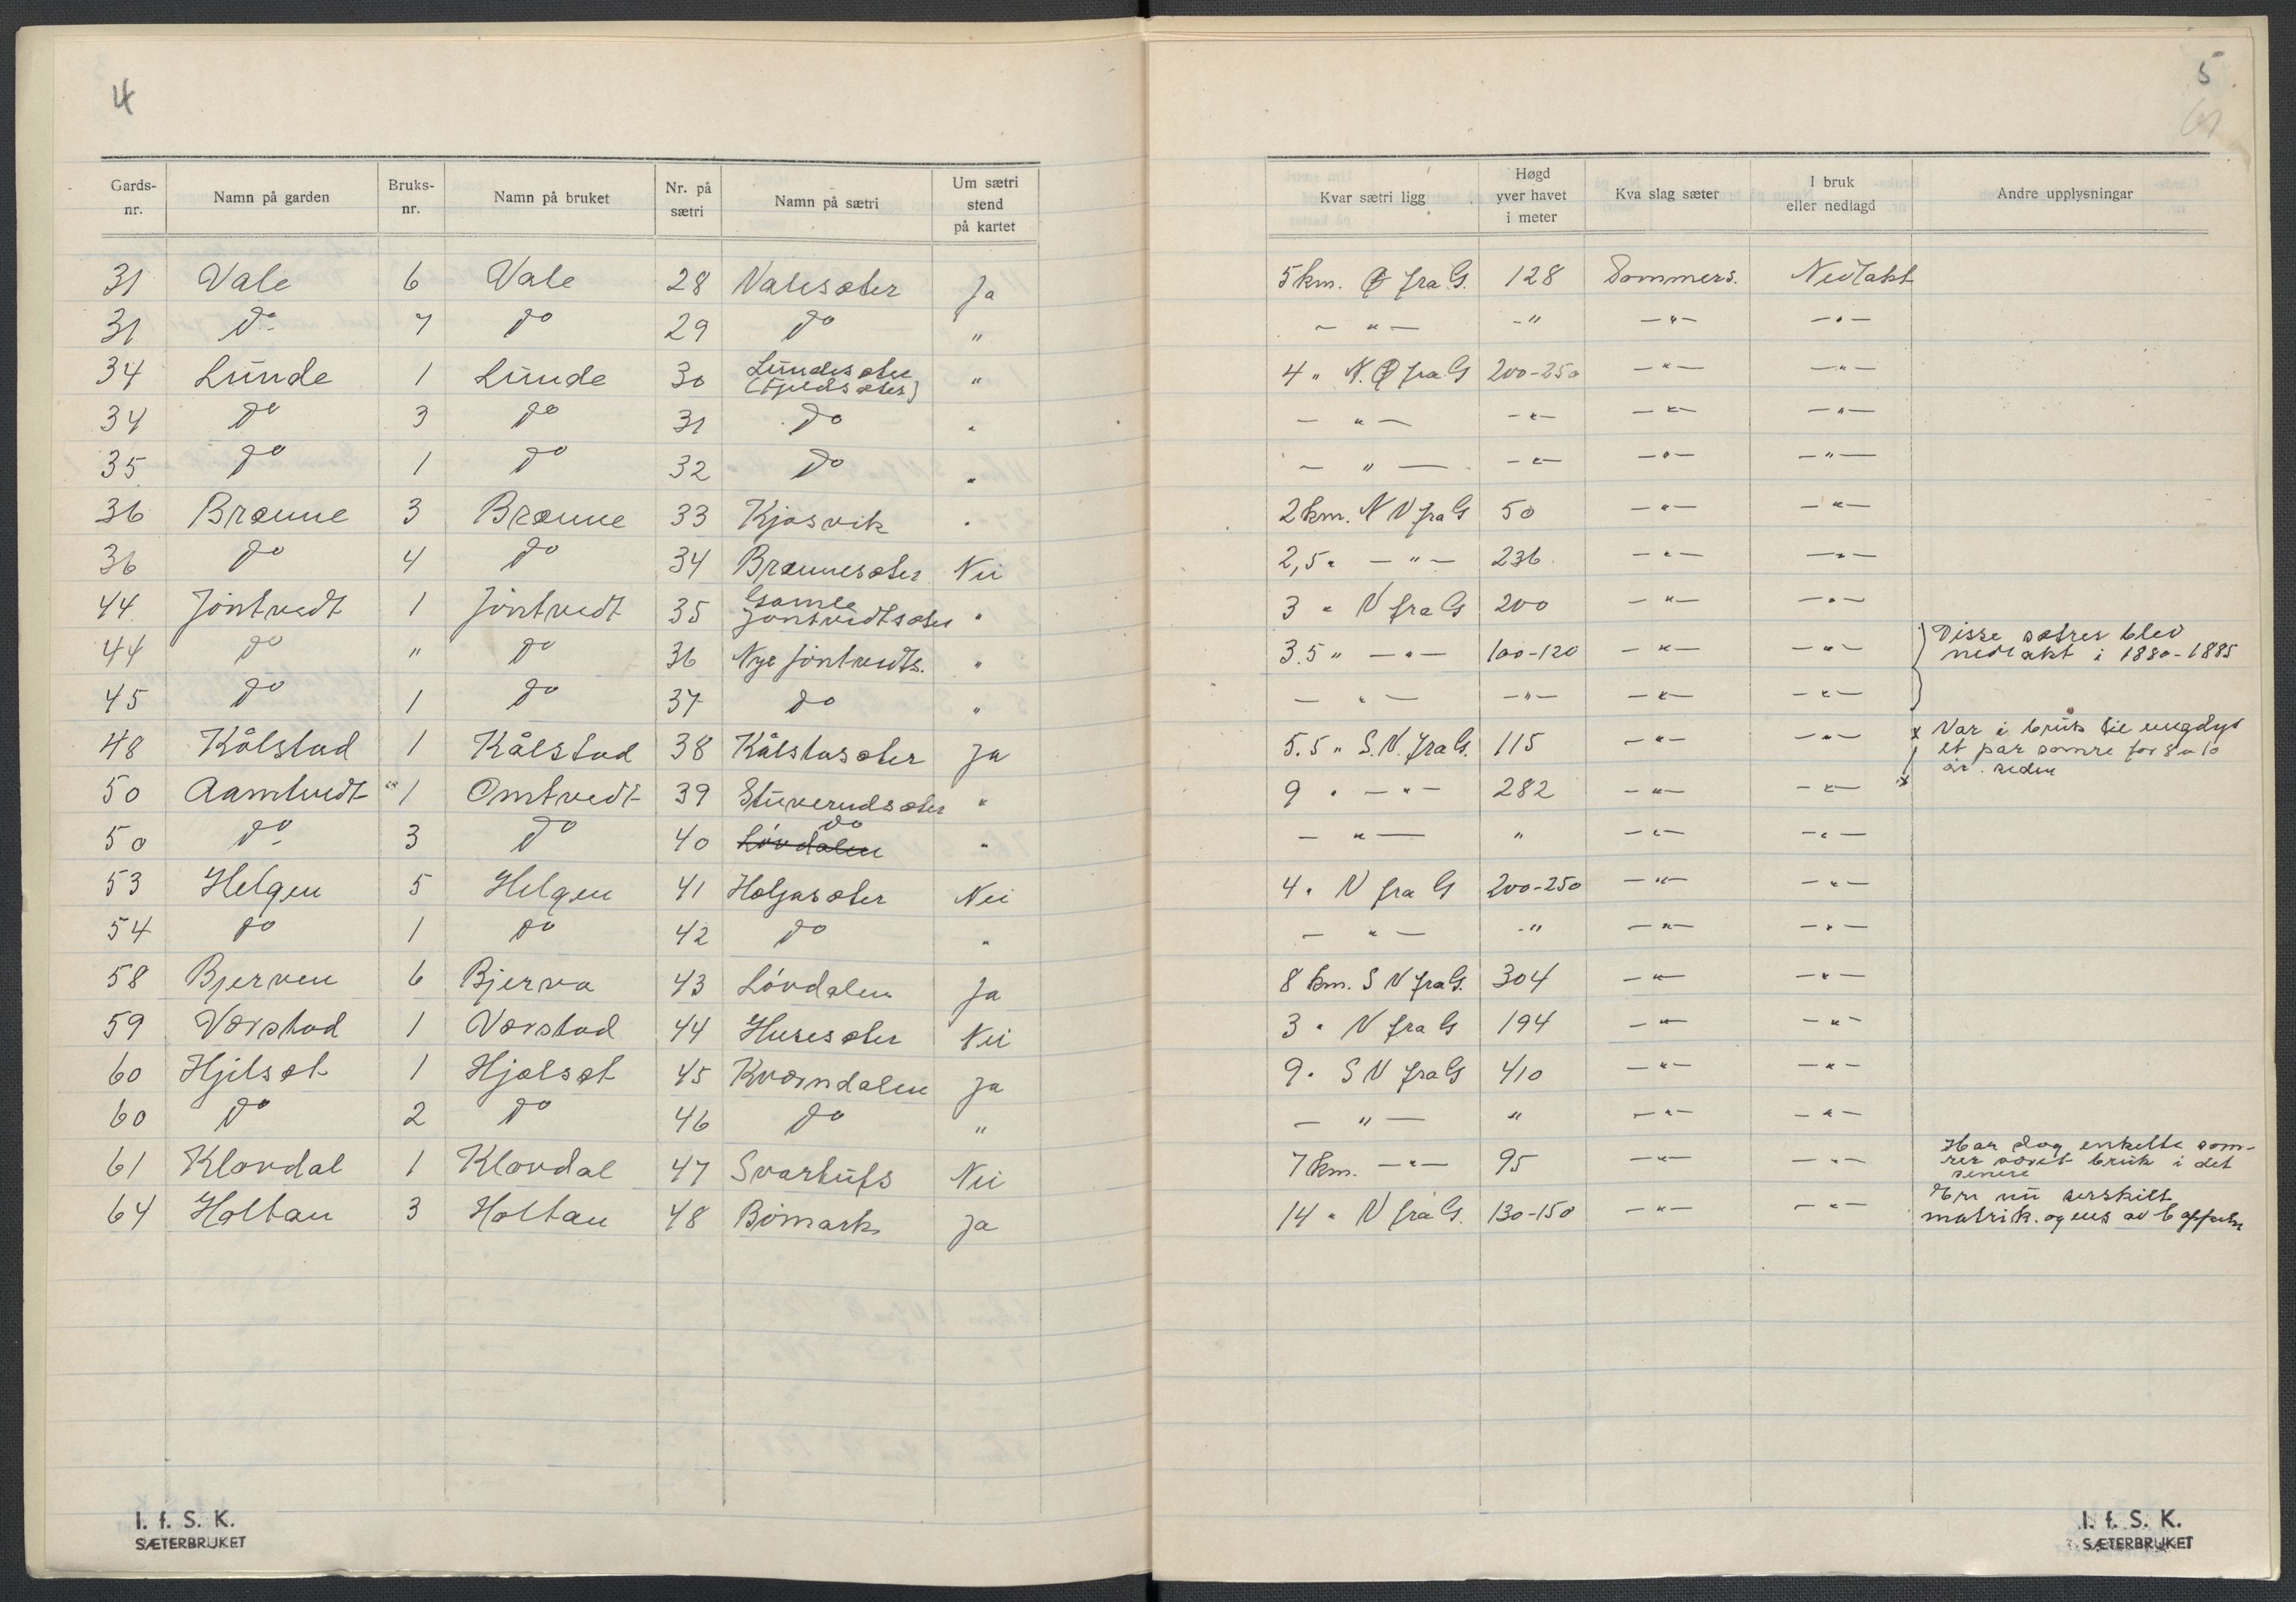 4
Gards-nr. Namn på garden Bruks-nr. Namn på bruket Nr. på sætri Namn på sætri Um sætri stend på kartet
31 Vale 6 Vale 28 Valesæter Ja
31 do 7 do 29 do "
34 Lunde 1 Lunde 30 Lundesæter (Fjeldsæter) "
34 do 3 do 31 do "
35 do 1 do 32 do "
36 Brænne 3 Brænne 33 Kjøsvik "
36 do 4 do 34 Brænnesæter Nei
44 Jøntvedt 1 Jøntvedt 35 Gamle Jøntvedtsæter "
44 do " do 36 Nye Jøntvedts. "
45 do 1 do 37 do "
48 Kålstad 1 Kålstad 38 Kålstasæter Ja
50 Aamtvedt 1 Omtvedt 39 Stuverudsæter "
50 do 3 do 40 Løvdalen do "
53 Helgen 5 Helgen 41 Holjasæter Nei
54 do 1 do 42 do "
58 Bjerven 6 Bjerva 43 Løvdalen Ja
59 Værstad 1 Værstad 44 Husesæter Nei
60 Hjelsæt 1 Hjælsæt 45 Kværndalen Ja
60 do 2 do 46 do "
61 Klovdal 1 Klovdal 47 Svartufs Nei
64 Holtan 3 Holtan 48 Bømark Ja
I. f. S. K.
SÆTERBRUKET
5
Kvar sætri ligg Høgd yver havet i meter Kva slag sæter I bruk eller nedlagd Andre upplysningar
5 km. Ø fra G. 128 Sommers. Nedlakt
— " — -" — " — — " —
4 " N.Ø fra G 200-250 — " — — " —
— " — — " — — " — — " —
— " — — " — — " — — " —
2 km. N V fra G 50 — " — — " —
2,5 " — " — 236 — " — — " —
3 " V fra G 200 — " — — " —
3.5 " — " — 100-120 — " — — " — Disse sætres blev nedlakt i 1880-1885
— " — — " — — " — — " —
5.5 " S.V. fra G. 115 — " — — " — x Var i bruk til et par somre for 8 a 10 år. siden
9 " — " — 282 — " — — " — x
— " — " — " — — " —
4 " V fra G 200-250 — " — — " —
— " — -" — " — — " —
8 km. S V fra G. 304 — " — — " —
3 " V fra G 194 — " — — " —
9 " S V fra G 410 — " — — " —
— " — " — " — — " —
7 km. — " — 95 — " — — " — Har dog enkelte somrer været bruk i det senere
14 " V fra G. 130-150 — " — — " — Er nu serskilt matrik. og
I. f. S. K.
SÆTERBRUKET